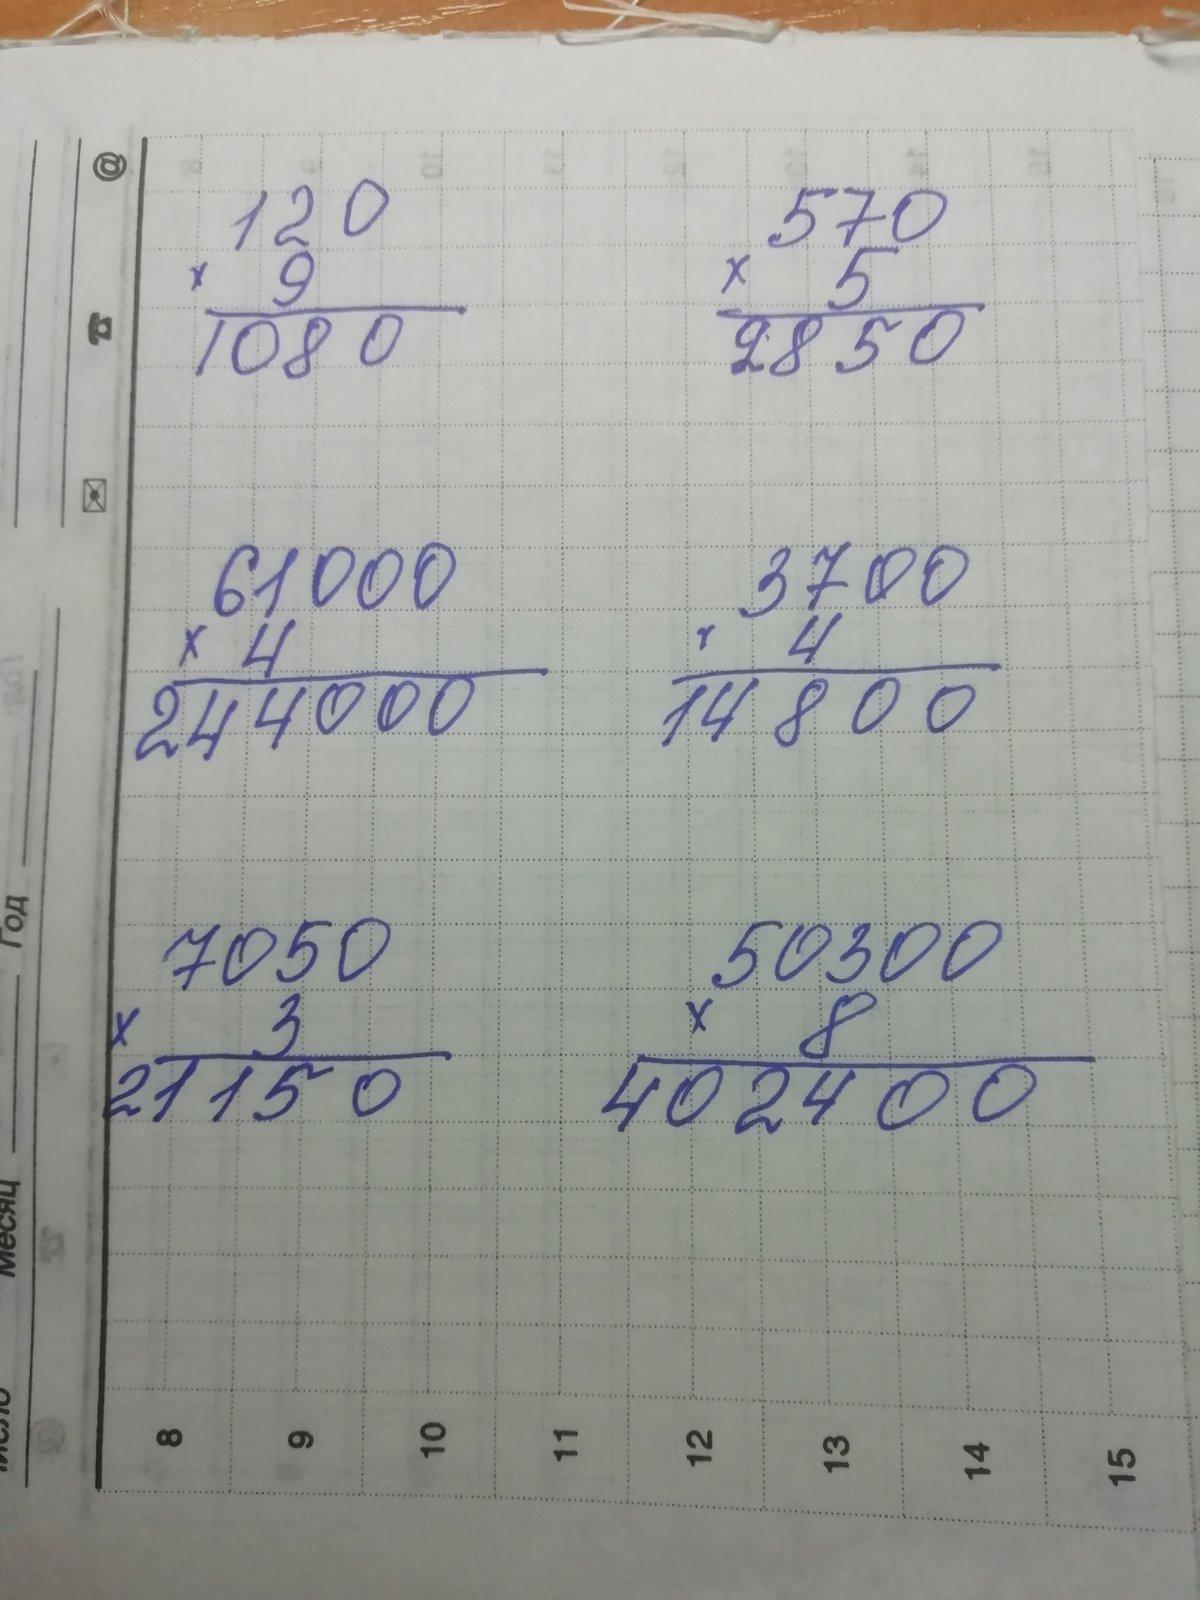 120
× 9
1080
570
× 5
2850
61000
× 4
244000
3700
× 4
14800
7050
× 3
21150
50300
× 8
402400
8
9
10
11
12
13
14
15
Месяц
Год
@